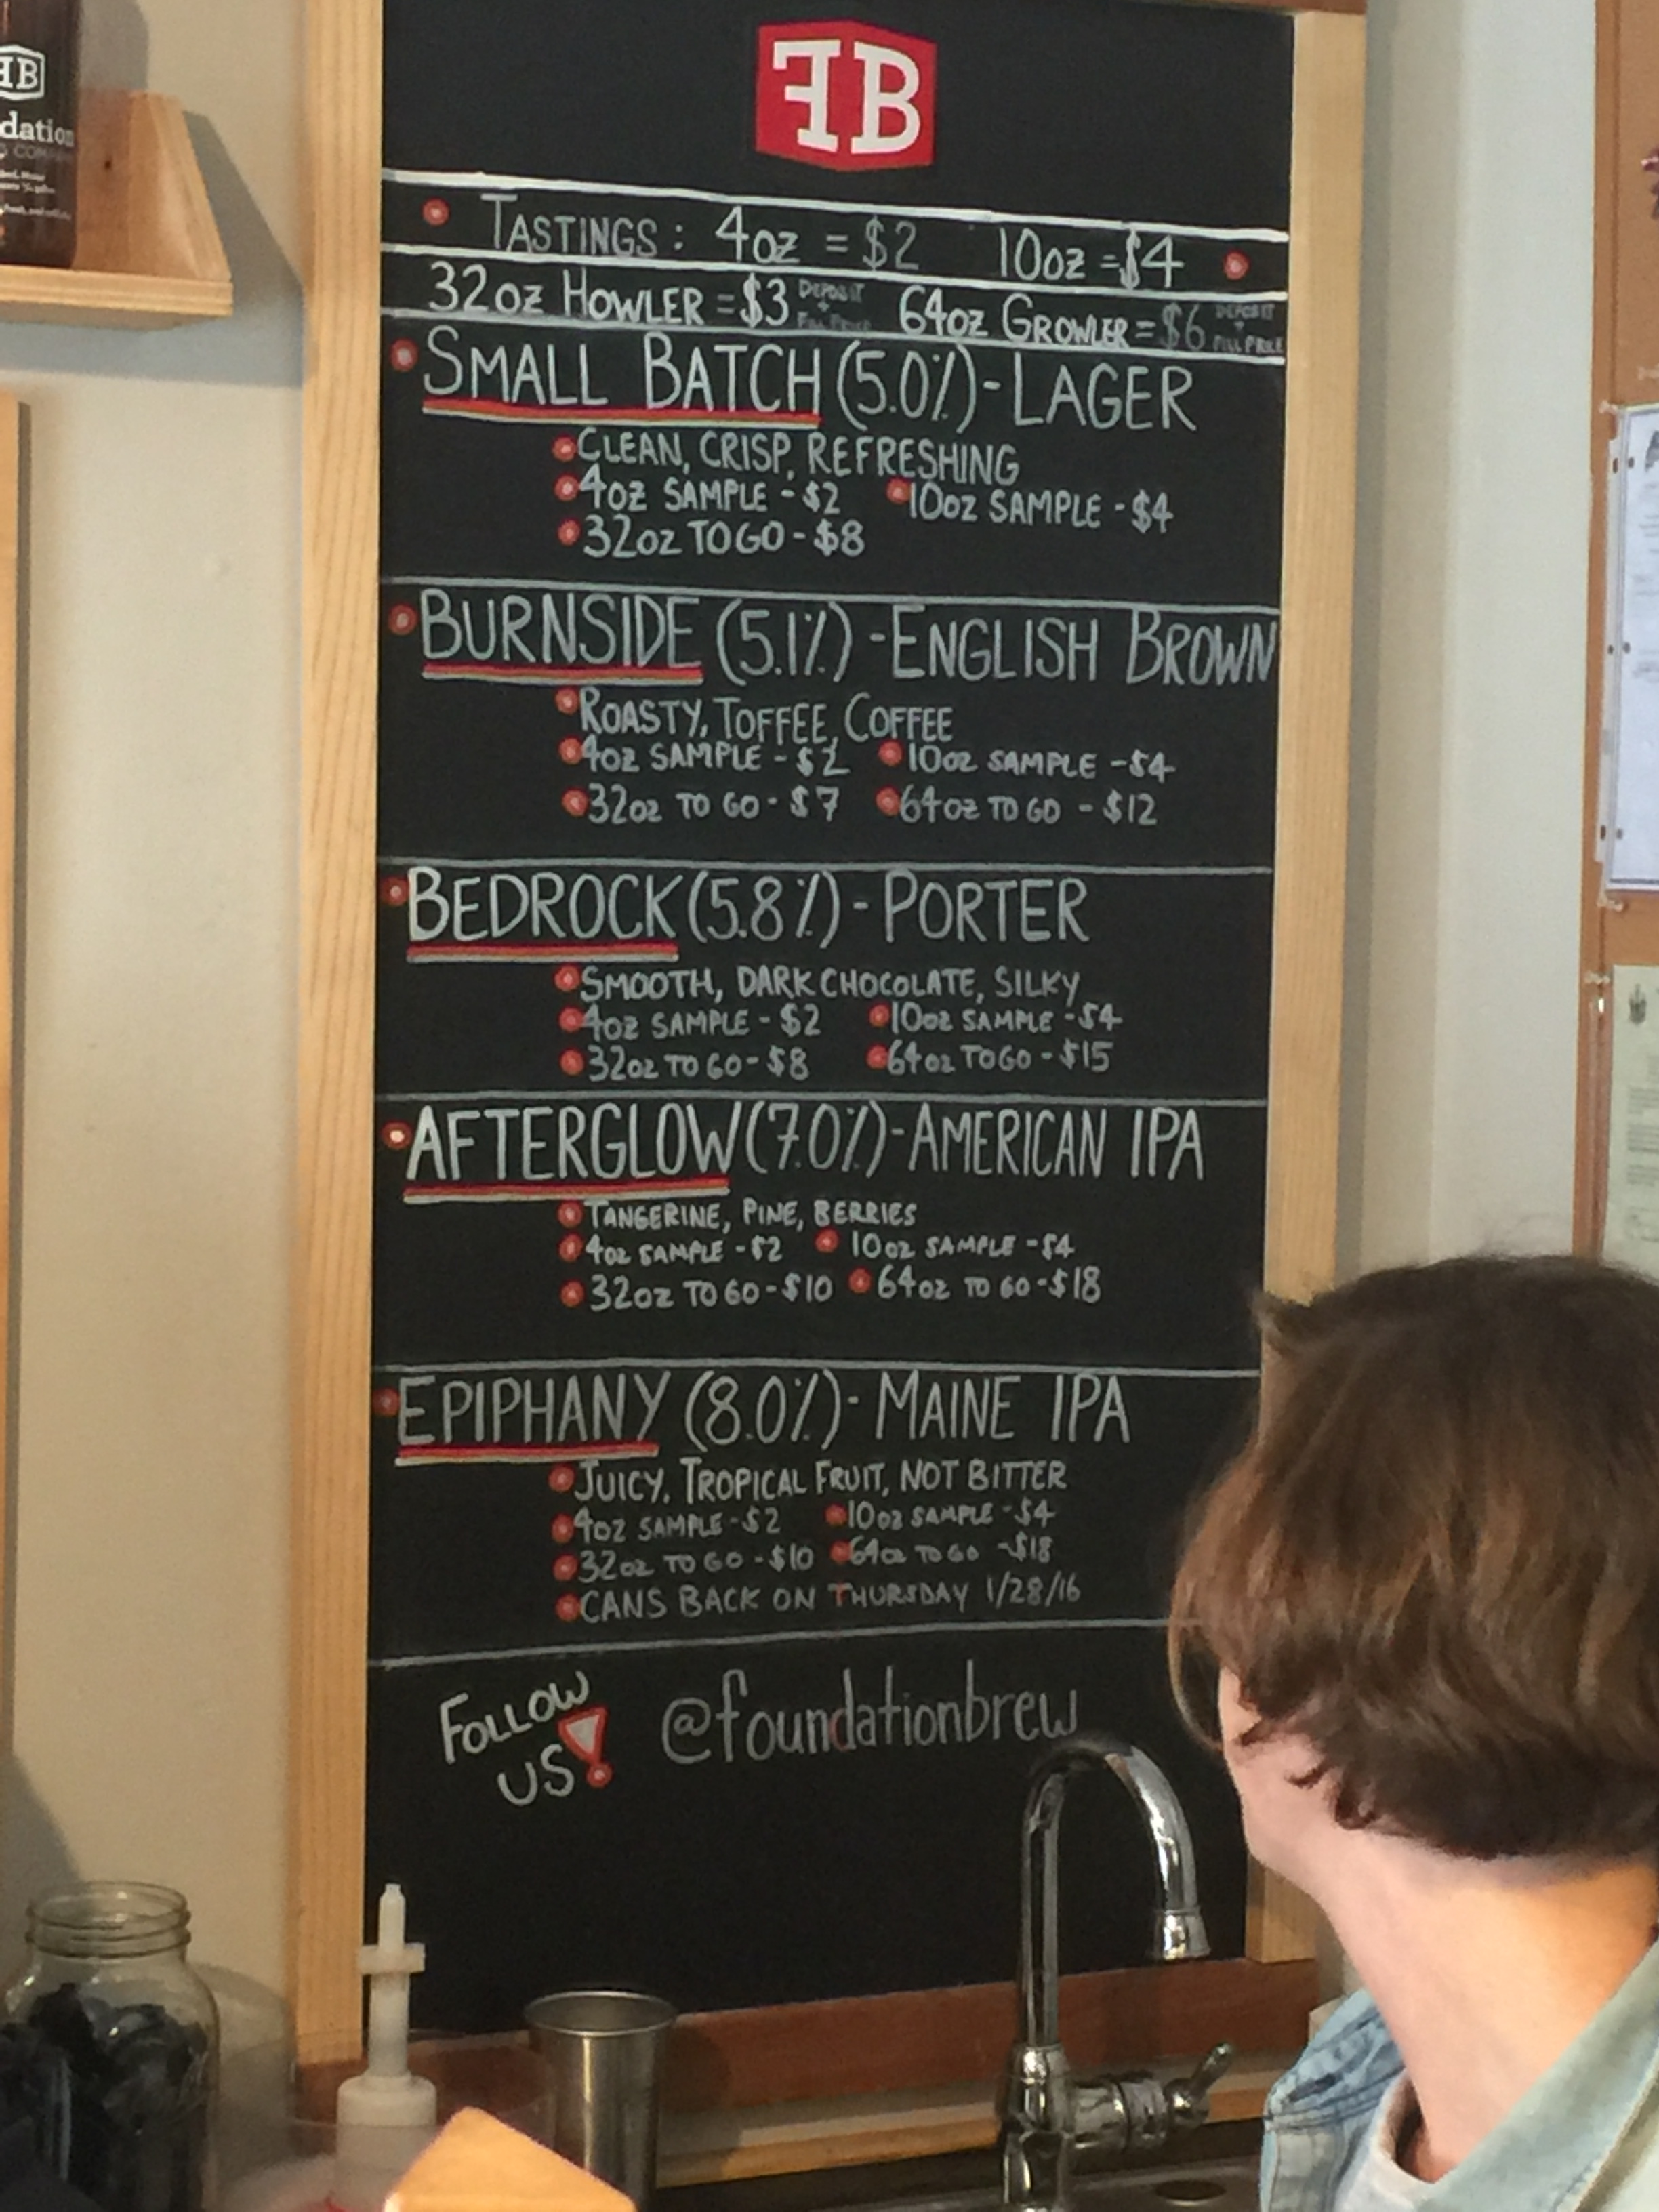 FB
TASTINGS: 4oz = $2 10oz = $4
32oz HOWLER = $3 DEPOSIT + FILL PRICE 64oz GROWLER = $6 DEPOSIT + FILL PRICE
SMALL BATCH (5.0%) - LAGER
CLEAN, CRISP, REFRESHING
4oz SAMPLE - $2 10oz SAMPLE - $4
32oz TO GO - $8
BURNSIDE (5.1%) - ENGLISH BROWN
ROASTY, TOFFEE, COFFEE
4oz SAMPLE - $2 10oz SAMPLE - $4
32oz TO GO - $7 64oz TO GO - $12
BEDROCK (5.8%) - PORTER
SMOOTH, DARK CHOCOLATE, SILKY
4oz SAMPLE - $2 10oz SAMPLE - $4
32oz TO GO - $8 64oz TO GO - $15
AFTERGLOW (7.0%) - AMERICAN IPA
TANGERINE, PINE, BERRIES
4oz SAMPLE - $2 10oz SAMPLE - $4
32oz TO GO - $10 64oz TO GO - $18
EPIPHANY (8.0%) - MAINE IPA
JUICY, TROPICAL FRUIT, NOT BITTER
4oz SAMPLE - $2 10oz SAMPLE - $4
32oz TO GO - $10 64oz TO GO - $18
CANS BACK ON THURSDAY 1/28/16
FOLLOW US! @foundationbrew
FB
dation